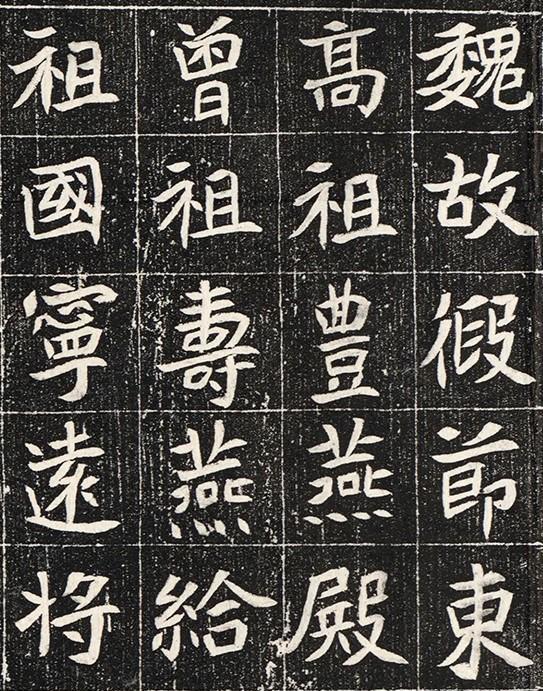 魏故假節東
髙祖豊燕殿
曽祖壽燕給
祖國寧遠将